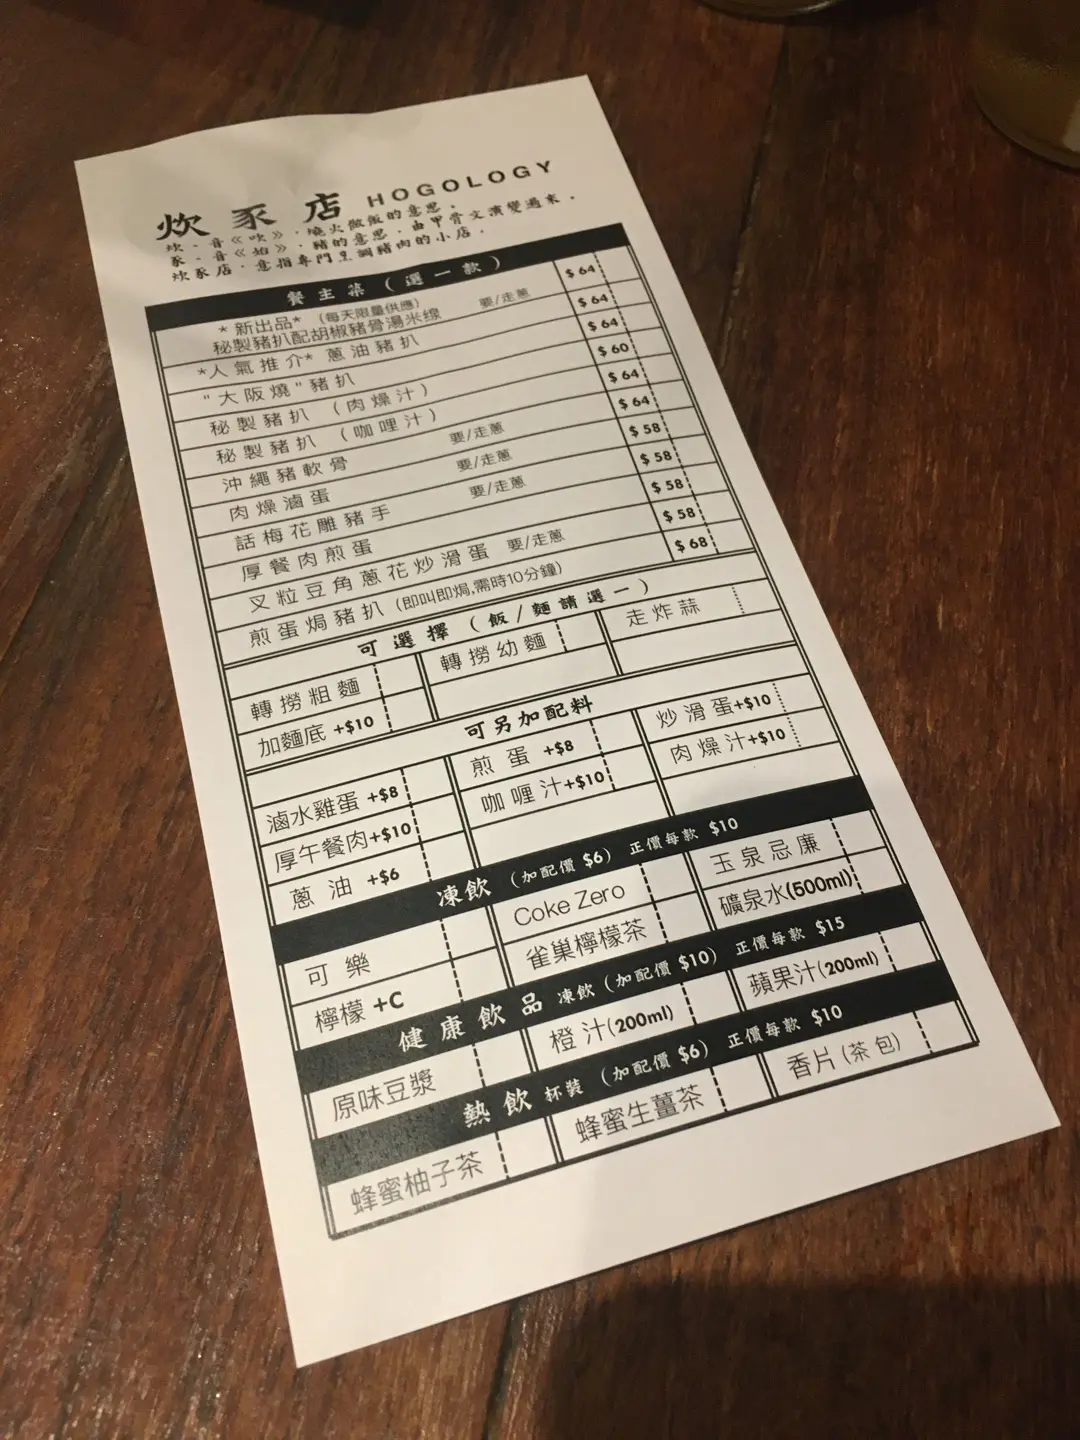 炊豕店 HOGOLOGY
炊﹐音《吹》﹐燒火做飯的意思。
豕﹐音《始》﹐豬的意思﹐由甲骨文演變過來。
炊豕店﹐意指專門烹調豬肉的小店。
餐主菜（選一款）
*新出品* (每天限量供應)
秘製豬扒配胡椒豬骨湯米線 要/走蔥 $64
*人氣推介* 蔥油豬扒 $64
"大阪燒"豬扒 $64
秘製豬扒（肉燥汁） $60
秘製豬扒（咖喱汁） $64
沖繩豬軟骨 $64
肉燥滷蛋 要/走蔥 $58
話梅花雕豬手 要/走蔥 $58
厚餐肉煎蛋 要/走蔥 $58
叉粒豆角蔥花炒滑蛋 要/走蔥 $58
煎蛋焗豬扒 (即叫即焗,需時10分鐘) $68
可選擇（飯/麵請選一）
轉撈粗麵 轉撈幼麵 走炸蒜
加麵底 +$10
可另加配料
滷水雞蛋 +$8 煎蛋 +$8 炒滑蛋+$10
厚午餐肉+$10 咖喱汁+$10 肉燥汁+$10
蔥油 +$6
凍飲（加配價 $6）正價每款 $10
可樂 Coke Zero 玉泉忌廉
檸檬 +C 雀巢檸檬茶 礦泉水(500ml)
健康飲品 凍飲（加配價 $10）正價每款 $15
原味豆漿 橙汁(200ml) 蘋果汁(200ml)
熱飲 杯裝（加配價 $6）正價每款 $10
蜂蜜柚子茶 蜂蜜生薑茶 香片(茶包)